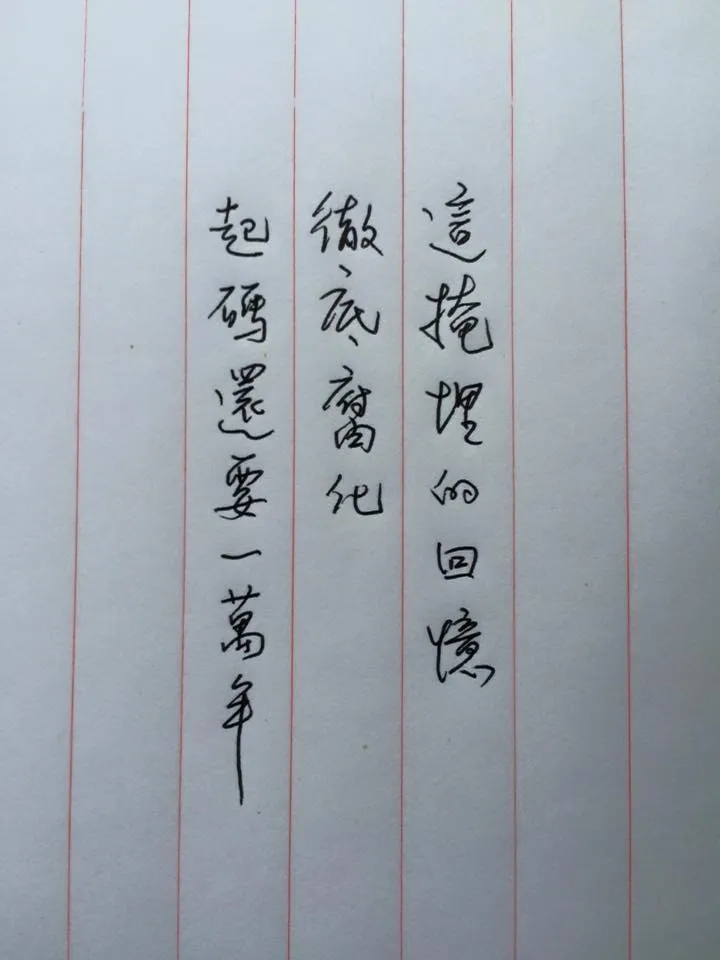 這掩埋的回憶
徹底腐化
起碼還要一萬年